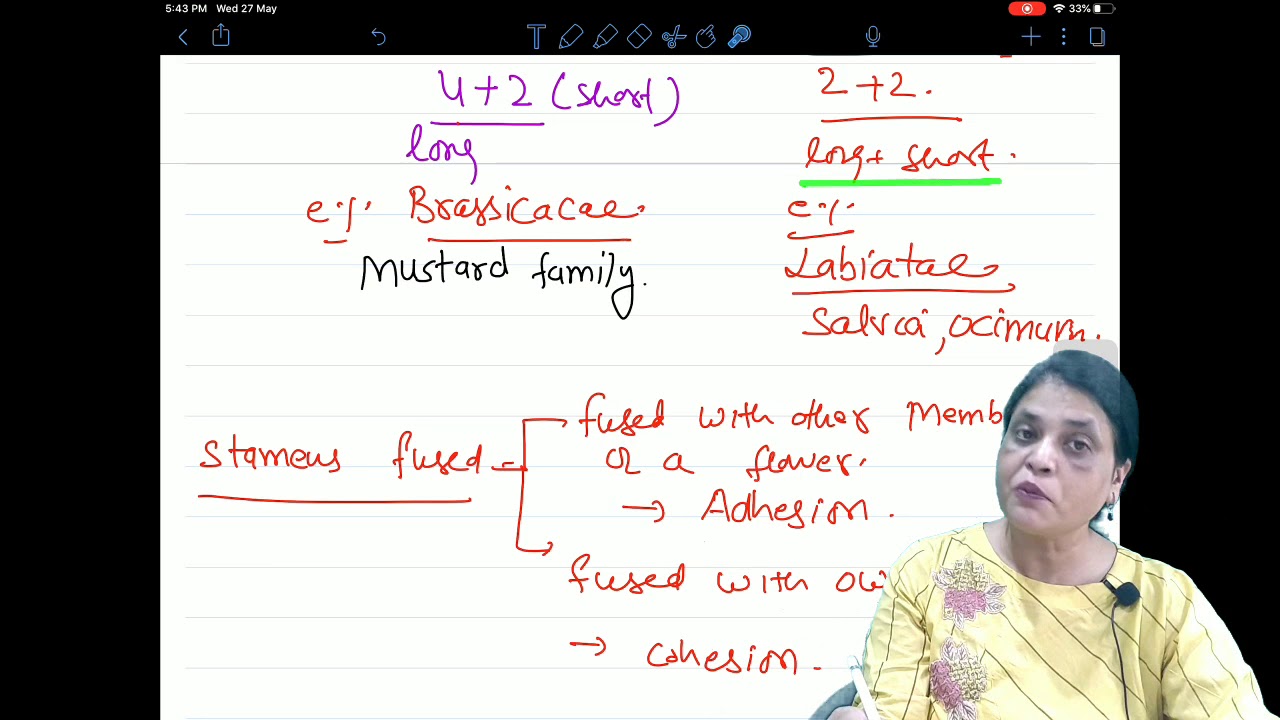 5:43 PM Wed 27 May
33%
4+2 (short)
long
2+2.
long+ short.
e.g. Brassicacae.
Mustard family.
e.g.
Labiatae
Salvia, ocimum.
Stamens fused
fused with other Memb
of a flower.
→ Adhesion.
fused with
→ cohesion.